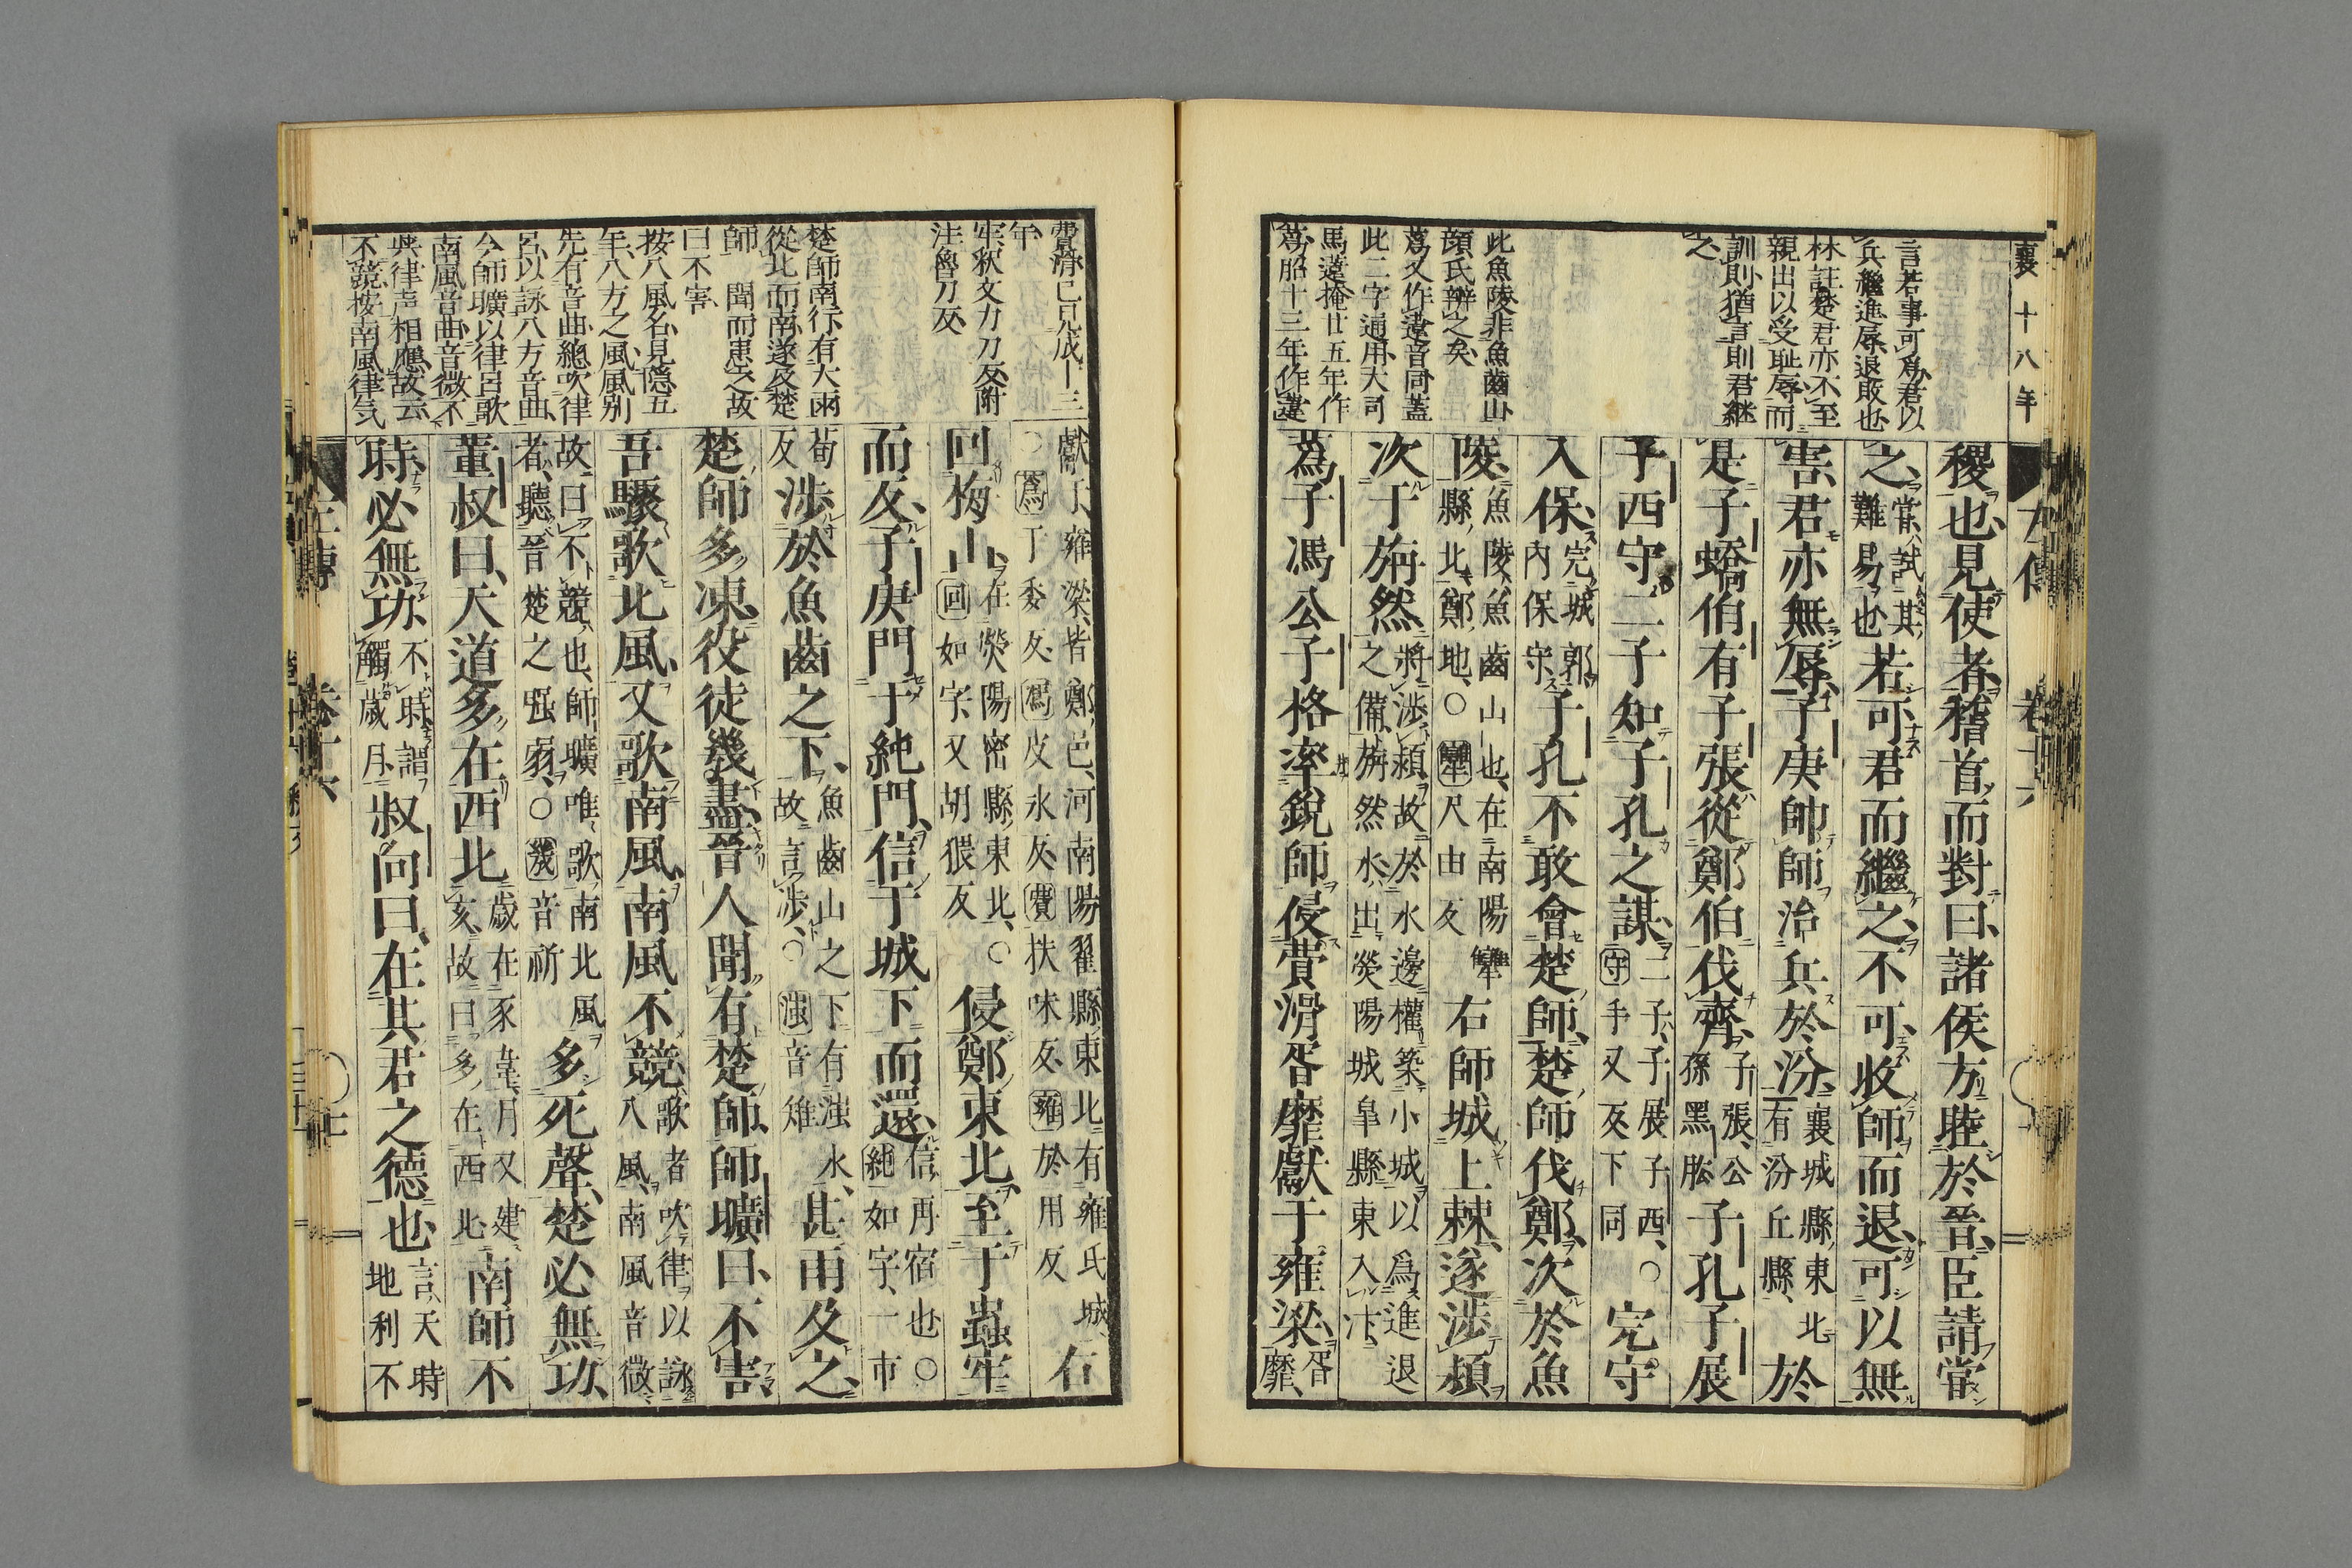 襄十八年
左傳
卷十六
言若事可爲君以
兵繼進辱退敗也
林註楚君亦不至
親出以受恥辱而
訓則猶言則君継
之
此魚陵非魚齒山
顔氏辨之矣
蒍又作薳音同蓋
此二字通用大司
馬薳掩廿五年作
蒍昭十三年作薳
稷也見使者稽首而對曰諸侯方睦於晉臣請嘗
之嘗試其難易也若可君而繼之不可收師而退可以無
害君亦無辱子庚帥師治兵於汾襄城縣東北有汾丘縣於
是子蟜伯有子張從鄭伯伐齊子張公孫黑肱子孔子展
子西守二子知子孔之謀二子子展子西○守手又反下同完守
入保完城郭內保守子孔不敢會楚師楚師伐鄭次於魚
陵魚陵魚齒山也在南陽犨縣北鄭地○犨尺由反右師城上棘遂涉潁
次于旃然將涉潁故於水邊權築小城以爲進退之備旃然水出熒陽城皐縣東入汴
蒍子馮公子格率銳師侵費滑胥靡獻于雍梁胥靡
費滑已見成十三
年
牢釈文力刀反附
注魯刀反
楚師南行有大雨
從北而南遂及楚
師
聞而患之故
曰不害
按八風名見隱五
年八方之風風别
先有音曲總吹律
呂以詠八方音曲
今師曠以律呂歌
南風音曲音微不
與律声相應故云
不競按南風律気
獻于雍梁皆鄭邑河南陽翟縣東北有雍氏城○蒍于委反馮皮氷反費扶味反雍於用反右
回梅山在熒陽密縣東北○回如字又胡猥反侵鄭東北至于蟲牢
而反子庚門于純門信于城下而還信再宿也○純如字一市
荀反涉於魚齒之下魚齒山之下有滍水故言涉○滍音雉甚雨及之
楚師多凍役徒幾盡晉人聞有楚師師曠曰不害
吾驟歌北風又歌南風南風不競歌者吹律以詠八風南風音微
故曰不競也師曠唯歌南北風者聽晉楚之强弱○幾音祈多死聲楚必無功
董叔曰天道多在西北歲在豕韋月又建亥故曰多在西北南師不
時必無功不時謂觸歲月叔向曰在其君之德也言天時地利不
左傳
卷十六